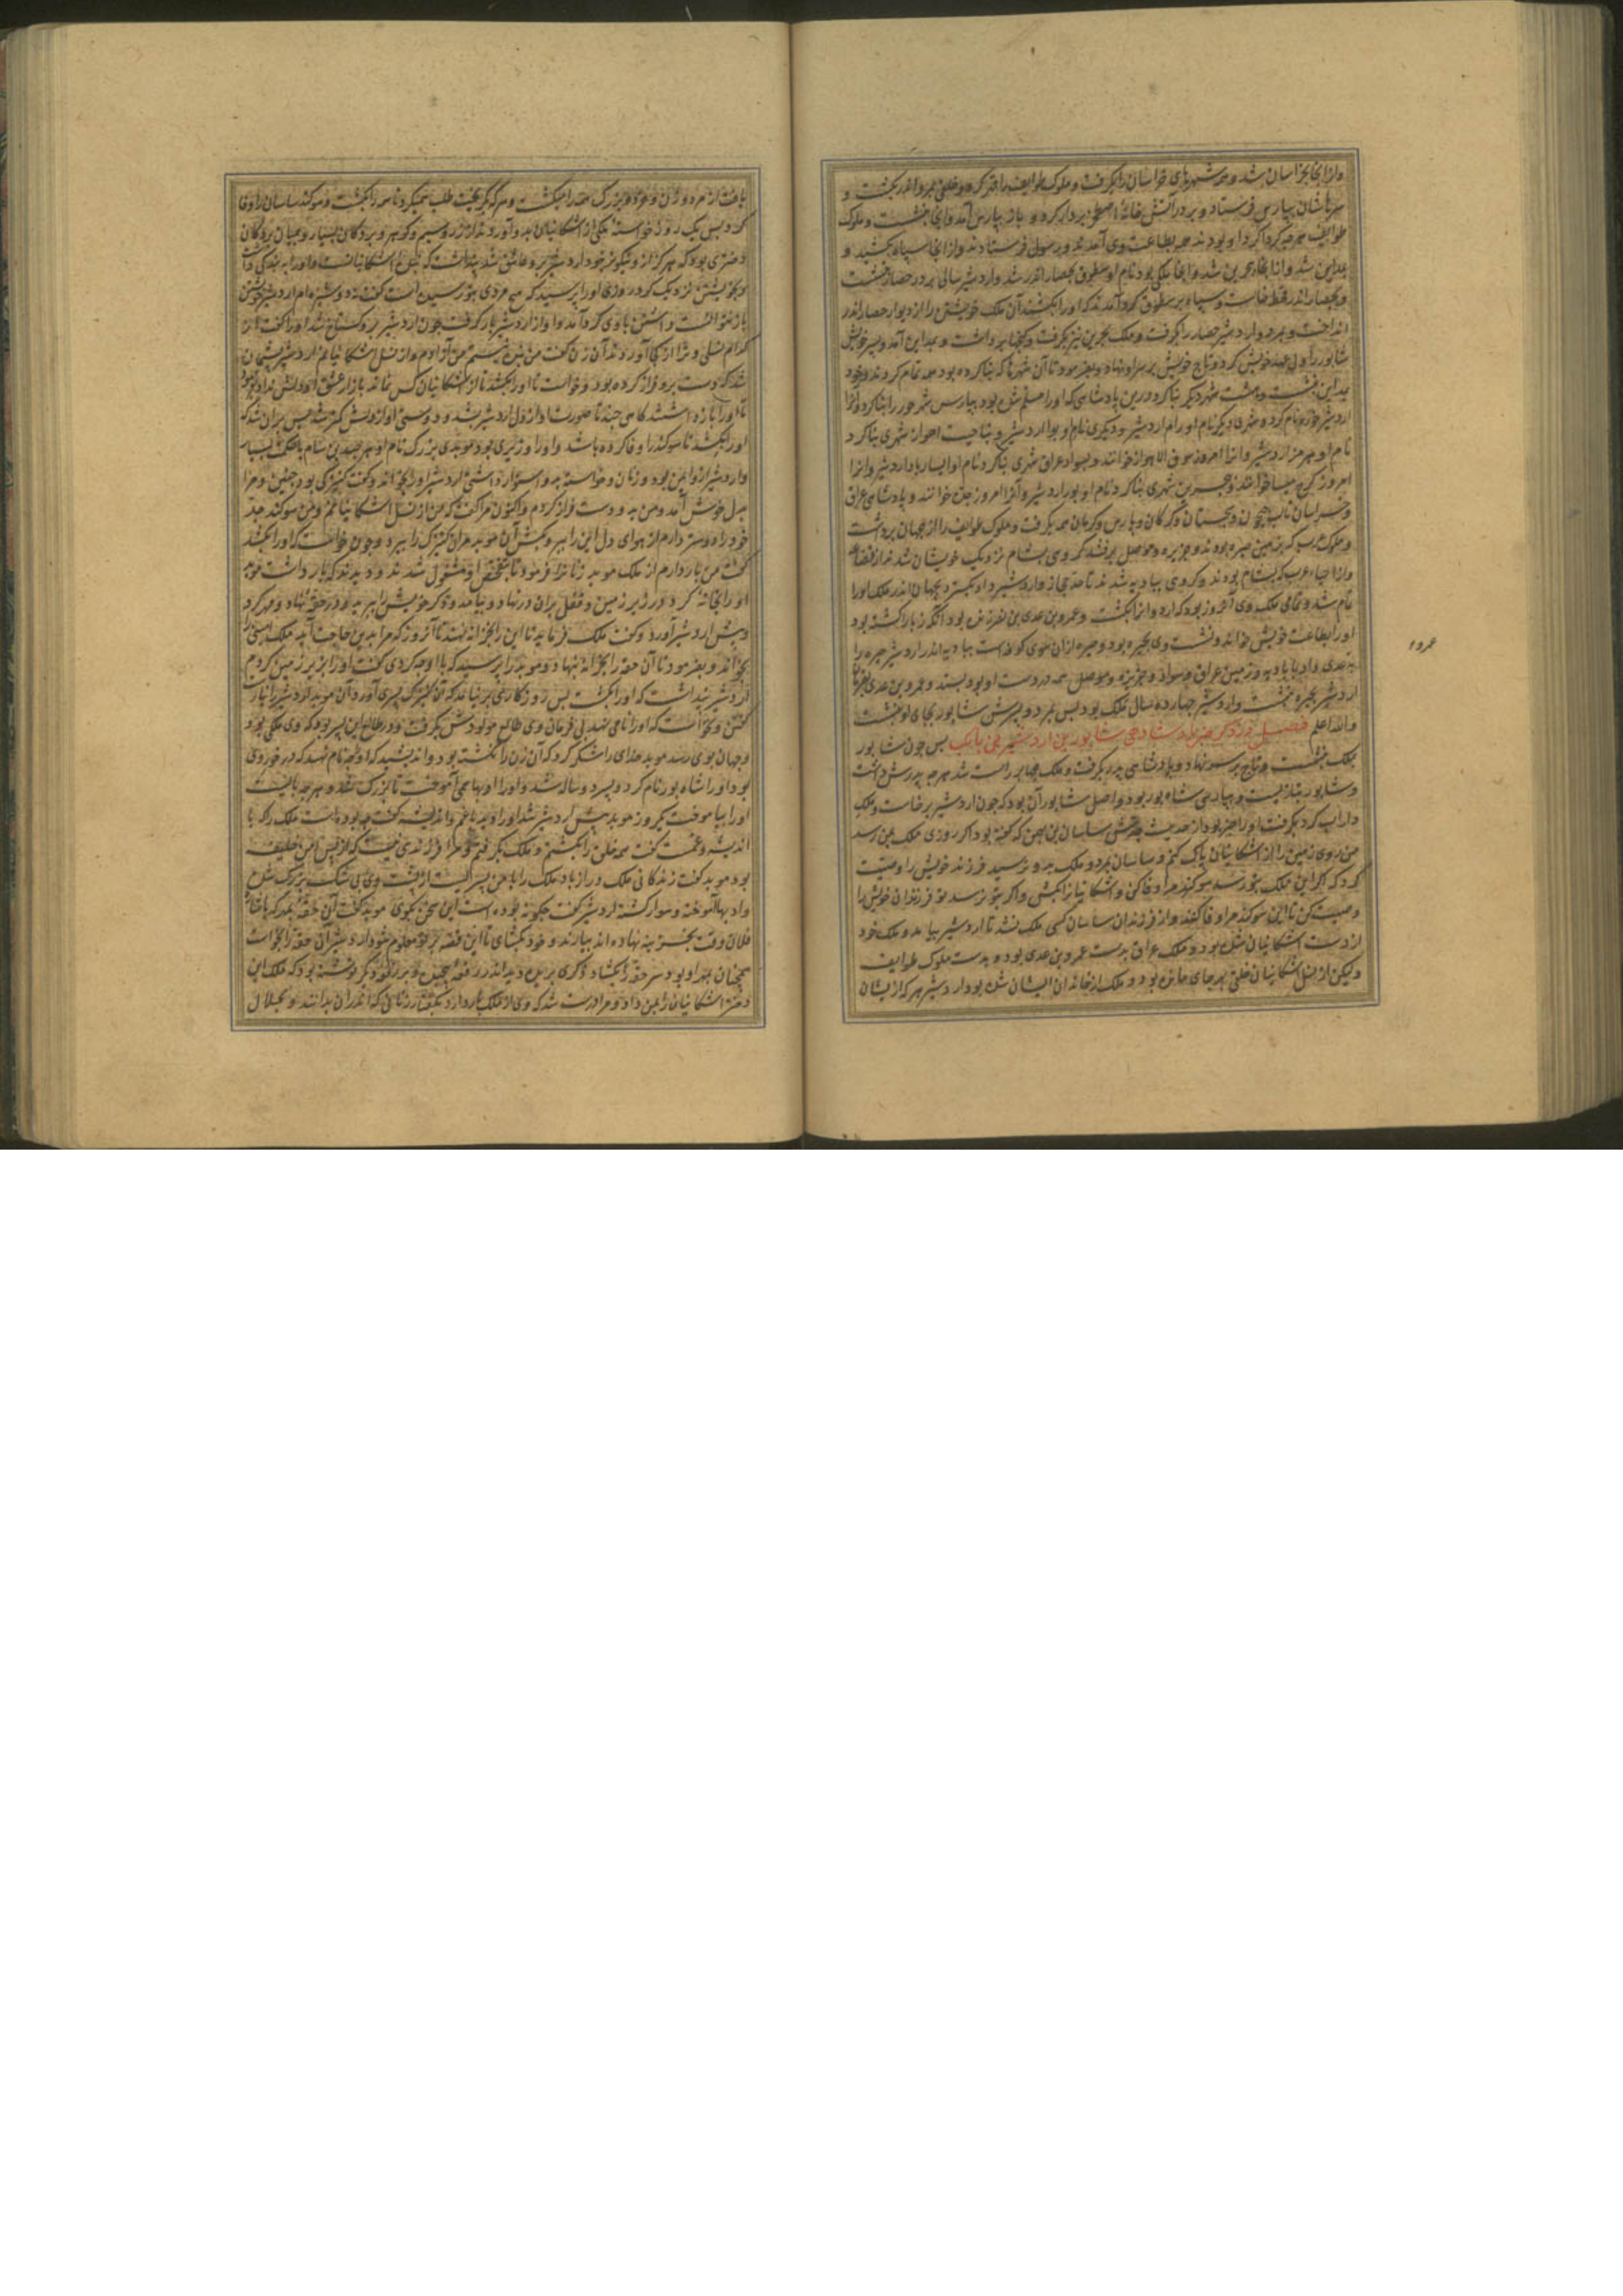 وازانجا بخراسان شد و همه شهرهای خراسان را بگرفت و ملوک طوایف را قهر کرد و خلقی بمرو اندر بکشت و
سرهاشان بپارس فرستاد و بر در آتش خانهٔ اصطخر بردار کرد و باز بپارس آمد وانجا بنشست و ملوک
طوایف هر چه کرداکرد او بودند همه بطاعت وی آمدند و رسول فرستادند وازانجا سپاه بکشید و
بمداین شد وانجا بحرین شد وانجا ملکی بود نام او سطوق بحصار اندر شد واردشیر سالی بر در حصار بنشست
و بحصار اندر قحط خاست و سپاه بر سطوق کرد آمدند که اورا بکشند آن ملک خویشتن را از دیوار حصار اندر
انداخت و بمرد واردشیر حصار را بگرفت و ملک بحرین نیز بگرفت و کنجها برداشت و بمداین آمد و پسر خویش
شاپور را ولی عهد خویش کرد و تاج خویش بر سر او نهاد و بفرمود تا آن شهرها که بنا کرده بود همه تمام کردند و خود
بمداین بنشست و هشت شهر دیکر بنا کرد درین پادشاهی که اورا مسلم شده بود بپارس شهر جور را بنا کرد و آنرا
اردشیر خوره نام کرد و شهری دیکر نام اورام اردشیر و دیکری نام او بوا اردشیر و بناحیت اهواز شهری بنا کرد
نام او هرمز اردشیر وانرا امروز سوق الاهواز خوانند و بسواد عراق شهری بنا کرد نام او
امروز کرخ میسا خوانند و ببحرین شهری بنا کرد نام او بور اردشیر وآنرا امروز خوانند و پادشاهی عراق
و خراسان تا لب جیحون و سجستان و کرکان و پارس و کرمان همه بکرفت و ملوک طوایف را از جهان برداشت
و ملوک عرب که بزمین حیره بودند و جزیره و موصل برفتند کروهی بشام نزدیک خویشان شدند از قضاعه
وازاحیاء عرب که بشام بودند و کروهی ببادیه شدند تا حد حجاز واردشیر داد بکسترد بجهان اندر ملک اورا
تمام شد و تمامی ملک وی آنروز بود که اردوانرا بکشت و عمرو بن عدی بن نصر زنده بود آنکه زبا را کشته بود
اورا بطاعت خویش خواند و نشست وی بحیره بود و حیره ازان سوی کوفه است ببادیه اندر اردشیر حیره را
بعدی داد با بادیه و زمین عراق و سواد و جزیره و موصل همه در دست او بود ببند و عمرو بن عدی
اردشیر بحیره بنشست واردشیر چهارده سال ملک بود پس بمرد و پسرش شاپور بجای او بنشست
والله اعلم فصل در ذکر خبر پادشاهی شاپور بن اردشیر بن بابک پس چون شاپور
بملک بنشست و تاج بر سر نهاد و پادشاهی پدر بکرفت و ملک بجهان بر راست شد هر چه پدرش داشت
و شاپور بتازیست و بپارسی شاه پور بود و اصل شاپور آن بود که چون اردشیر برخاست و ملک
داراب کرد بکرفت اورا خبر بود از حدیث جدش ساسان بن بهمن که کفته بود اکر روزی ملک بمن رسد
من روی زمین را از اشکانیان پاک کنم و ساسان بمرد و ملک بدو نرسید فرزند خویش را وصیت
کرد که اکر این ملک بتو رسد سوکند مرا وفا کن و اشکانیانرا بکش و اکر بتو نرسد تو فرزندان خویش را
وصیت کن تا این سوکند مرا وفا کنند و از فرزندان ساسان کسی ملک نشد تا اردشیر بیامد و ملک خود
از دست اشکانیان شده بود و ملک عراق بدست عمرو بن عدی بود و بدست ملوک طوایف
ولیکن از نسل اشکانیان خلقی بهر جای مانده بود و ملک از خاندان ایشان شده بود اردشیر هر که از ایشان
عمرو
یافت از مرد و زن و خرد و بزرک همه را میکشت و هر که بکریخت طلب میکرد تا همه را بکشت و سوکند ساسان را وفا
کرد پس یک روز خواسته ملکی از اشکانیان بدو آوردند از زر و سیم و کوهر و بردکان بسیار و میان بردکان
دختری بود که هرکز از و نیکوتر خود اردشیر برو عاشق شد پنداشت که اشکانیانست و اورا به بندکی داشت
و بخویشتن نزدیک کرد روزی اورا پرسید که هیچ مردی بتو رسیده است کفت نه دوشیزه ام اردشیر خویشتن
باز نتوانست داشتن با وی کرد آمد و او از اردشیر بار کرفت چون اردشیر برو کستاخ شد اورا کفت از
کدام نسلی و ترا از کجا آوردند آن زن کفت من بنده نیستم من آزادم و از نسل اشکانیانم اردشیر پشیمان
شد که دست برو فراز کرده بود و خواست تا اورا بکشد تا از اشکانیان کس نماند باز از عشق او دلش نداد
تا اورا باز داشتند کاهی چند تا صورت او از دل اردشیر بشد و دوستی او از دلش کمتر شد پس بران شد که
اورا بکشد تا سوکند را وفا کرده باشد و اورا وزیری بود موبدی بزرک نام او هرجند بن سام با حکمت بسیار
واردشیر ازو ایمن بود و زنان و خواسته بدو استوار داشتی اردشیر اورا بخواند و کفت کنیزکی بود چنین و مرا
بدل خوش آمد و من بدو دست فراز کردم و اکنون مرا کفت که من از نسل اشکانیانم و من سوکند جد
خود را دوستر دارم از هوای دل این را ببر و بکش آن موبد مران کنیزک را ببرد و چون خواست که اورا بکشد
کفت من بار دارم از ملک موبد زنانرا فرمود تا بتفحص او مشغول شدند و دیدند که بار داشت موبد
اورا بخانه کرد در زیر زمین و قفل بران در نهاد و بیامد و ذکر خویش را ببرید و در حقه نهاد و مهر کرد
و پیش اردشیر آورد و کفت ملک فرماید تا این را بخزانه نهند تا آنروز که مرا بدین حاجت آید ملک
بخواند و بفرمود تا آن حقه را بخزانه نهاد و موبد را پرسید که با او چه کردی کفت اورا بزیر زمین کردم
اردشیر پنداشت که اورا بکشت پس روزکاری بر نیامد که آن کنیزک پسری آورد آن موبد اردشیر را نیارست
کفتن و نخواست که اورا نامی نهد بی فرمان وی طالع مولودش بکرفت و در طالع این پسر بود که وی ملکی بود
و جهان بوی رسد موبد خدای را شکر کرد که آن زن را نکشته بود و اندیشید که او چه نام نهد که در خور وی
بود اورا شاه پور نام کرد و پسر ده ساله شد و اورا ادبها همی آموخت تا بزرک شد و هر چه بایست
اورا بیاموخت یکروز موبد پیش اردشیر شد اورا دید با غم و اندیشه کفت چه بوده است ملک را که با
اندیشه و غمست کفت همه خلق را بکشتم و ملک بکرفتم و مرا فرزندی نیست که از پس من خلیفت
بود موبد کفت زندکانی ملک دراز باد ملک را با من پسریست از پشت وی بی شک بزرک شده
و ادبها آموخته و سوار کشته اردشیر کفت چکونه بوده است این سخن بکوی موبد کفت آن حقه بمهر که
فلان وقت بخزینه نهاده اند بیارند و خود بکشای تا این قصه بر تو معلوم شود اردشیر آن حقه را بخواست
همچنان بمهر او بود سر حقه را بکشاد ذکری بریده دید اندر رقعه پیچیده و بر رقعه ذکر نوشته بود که ملک این
دختر اشکانیان را بمن داد و مرا درست شد که وی از ملک بار دارد بکفتار زنانی که اندران بدانند و بحلال